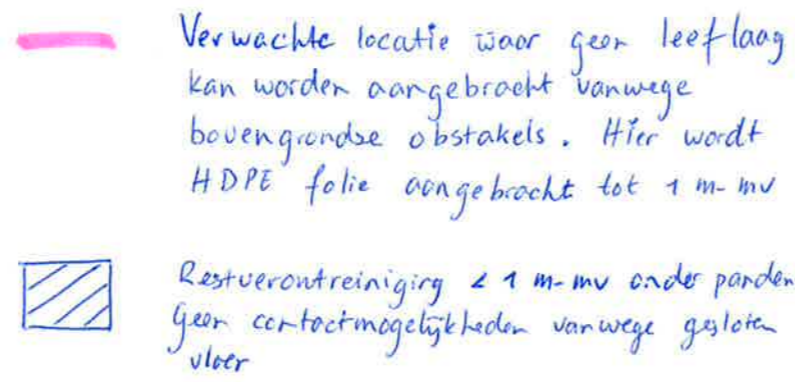 Verwachte locatie waar geen leeflaag
kan worden aangebracht vanwege
bovengrondse obstakels. Hier wordt
HDPE folie aangebracht tot 1 m-mv
Restverontreiniging < 1 m-mv onder panden
Geen contactmogelijkheden vanwege gesloten
vloer